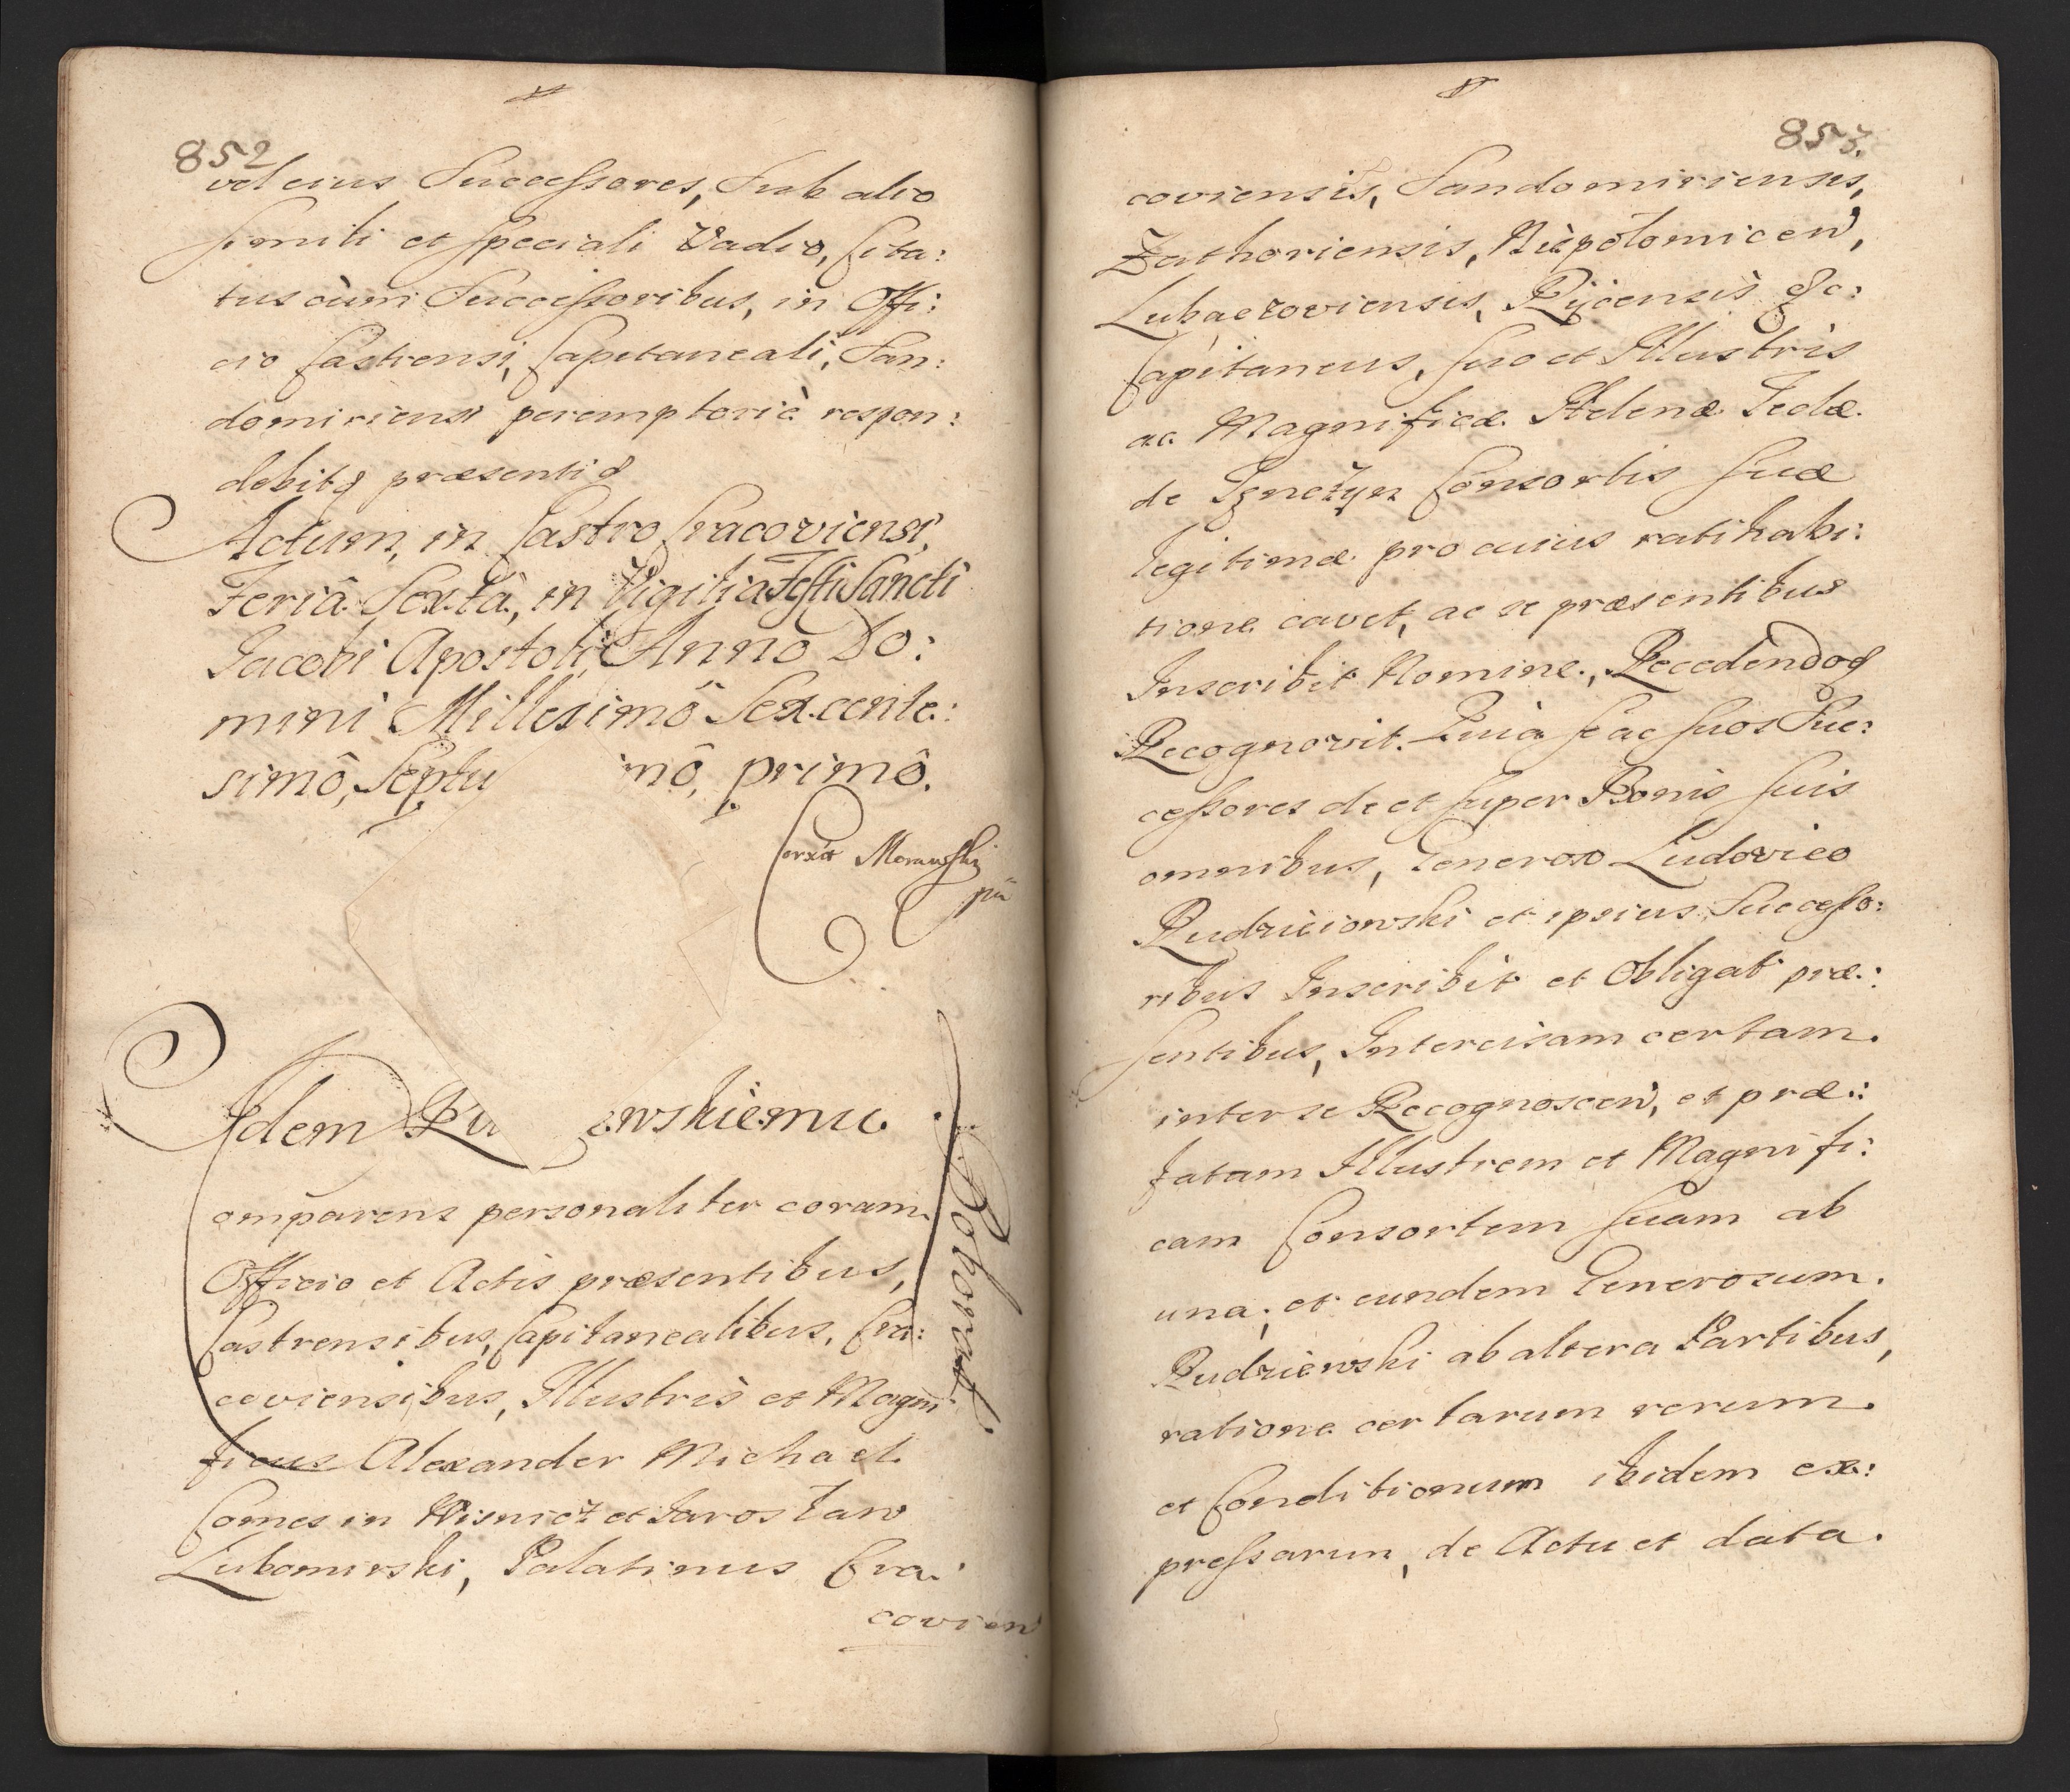 852
vel eius Successores, Sub alio
simili et speciali Vadio, Cita:
tus cùm Successoribus, in Offi:
cio Castrensi, Capitaneali, San:
domiriensi peremptoriè respon:
debitq præsentiq
Actum, in Castro Cracoviensi,
Feriâ Sextâ, in Vigilia Festi Sancti
Jacobi Apostoli, Anno Do:
mini Millesimô Sexcente:
simô, Septu mô, primô.
Morawski
Idem Ru ewskiemu.
Roborat.
omparens personaliter coram
Officio et Actis præsentibus,
Castrensibus, Capitanealibus, Cra:
coviensibus, Illustris et Magni
ficus Alexander Michael
Comes in Wisnicz et Jarosław
Lubomirski, Palatinus Cra:
covien
853.
coviensis, Sandomiriensis,
Zathoriensis, Niepołomicen,
Lubaczoviensis, Ryicensis &c:
Capitaneus, suo et Illustris
ac Magnificæ Helenæ Teclæ
de Tęnczyn Consortis suæ
legitimæ pro cuius ratihabi:
tione cavet, ac se præsentibus
Inscribit Nomine, Recedendoq
Recognovit. Quia se ac suos Suc:
cessores de et super Bonis suis
omnibus, Generoso Ludovico
Rudziciowski et ipsius Successo:
ribus Inscribit et Obligat præ:
sentibus, Intercisam certam
inter se Recognoscen, et præ:
fatam Illustrem et Magnifi:
cam Consortem suam ab
una, et eundem Generosum
Rudziewski ab altera Partibus,
ratione certarum rerum
et Conditionum ibidem ex:
pressarum, de Actu et data